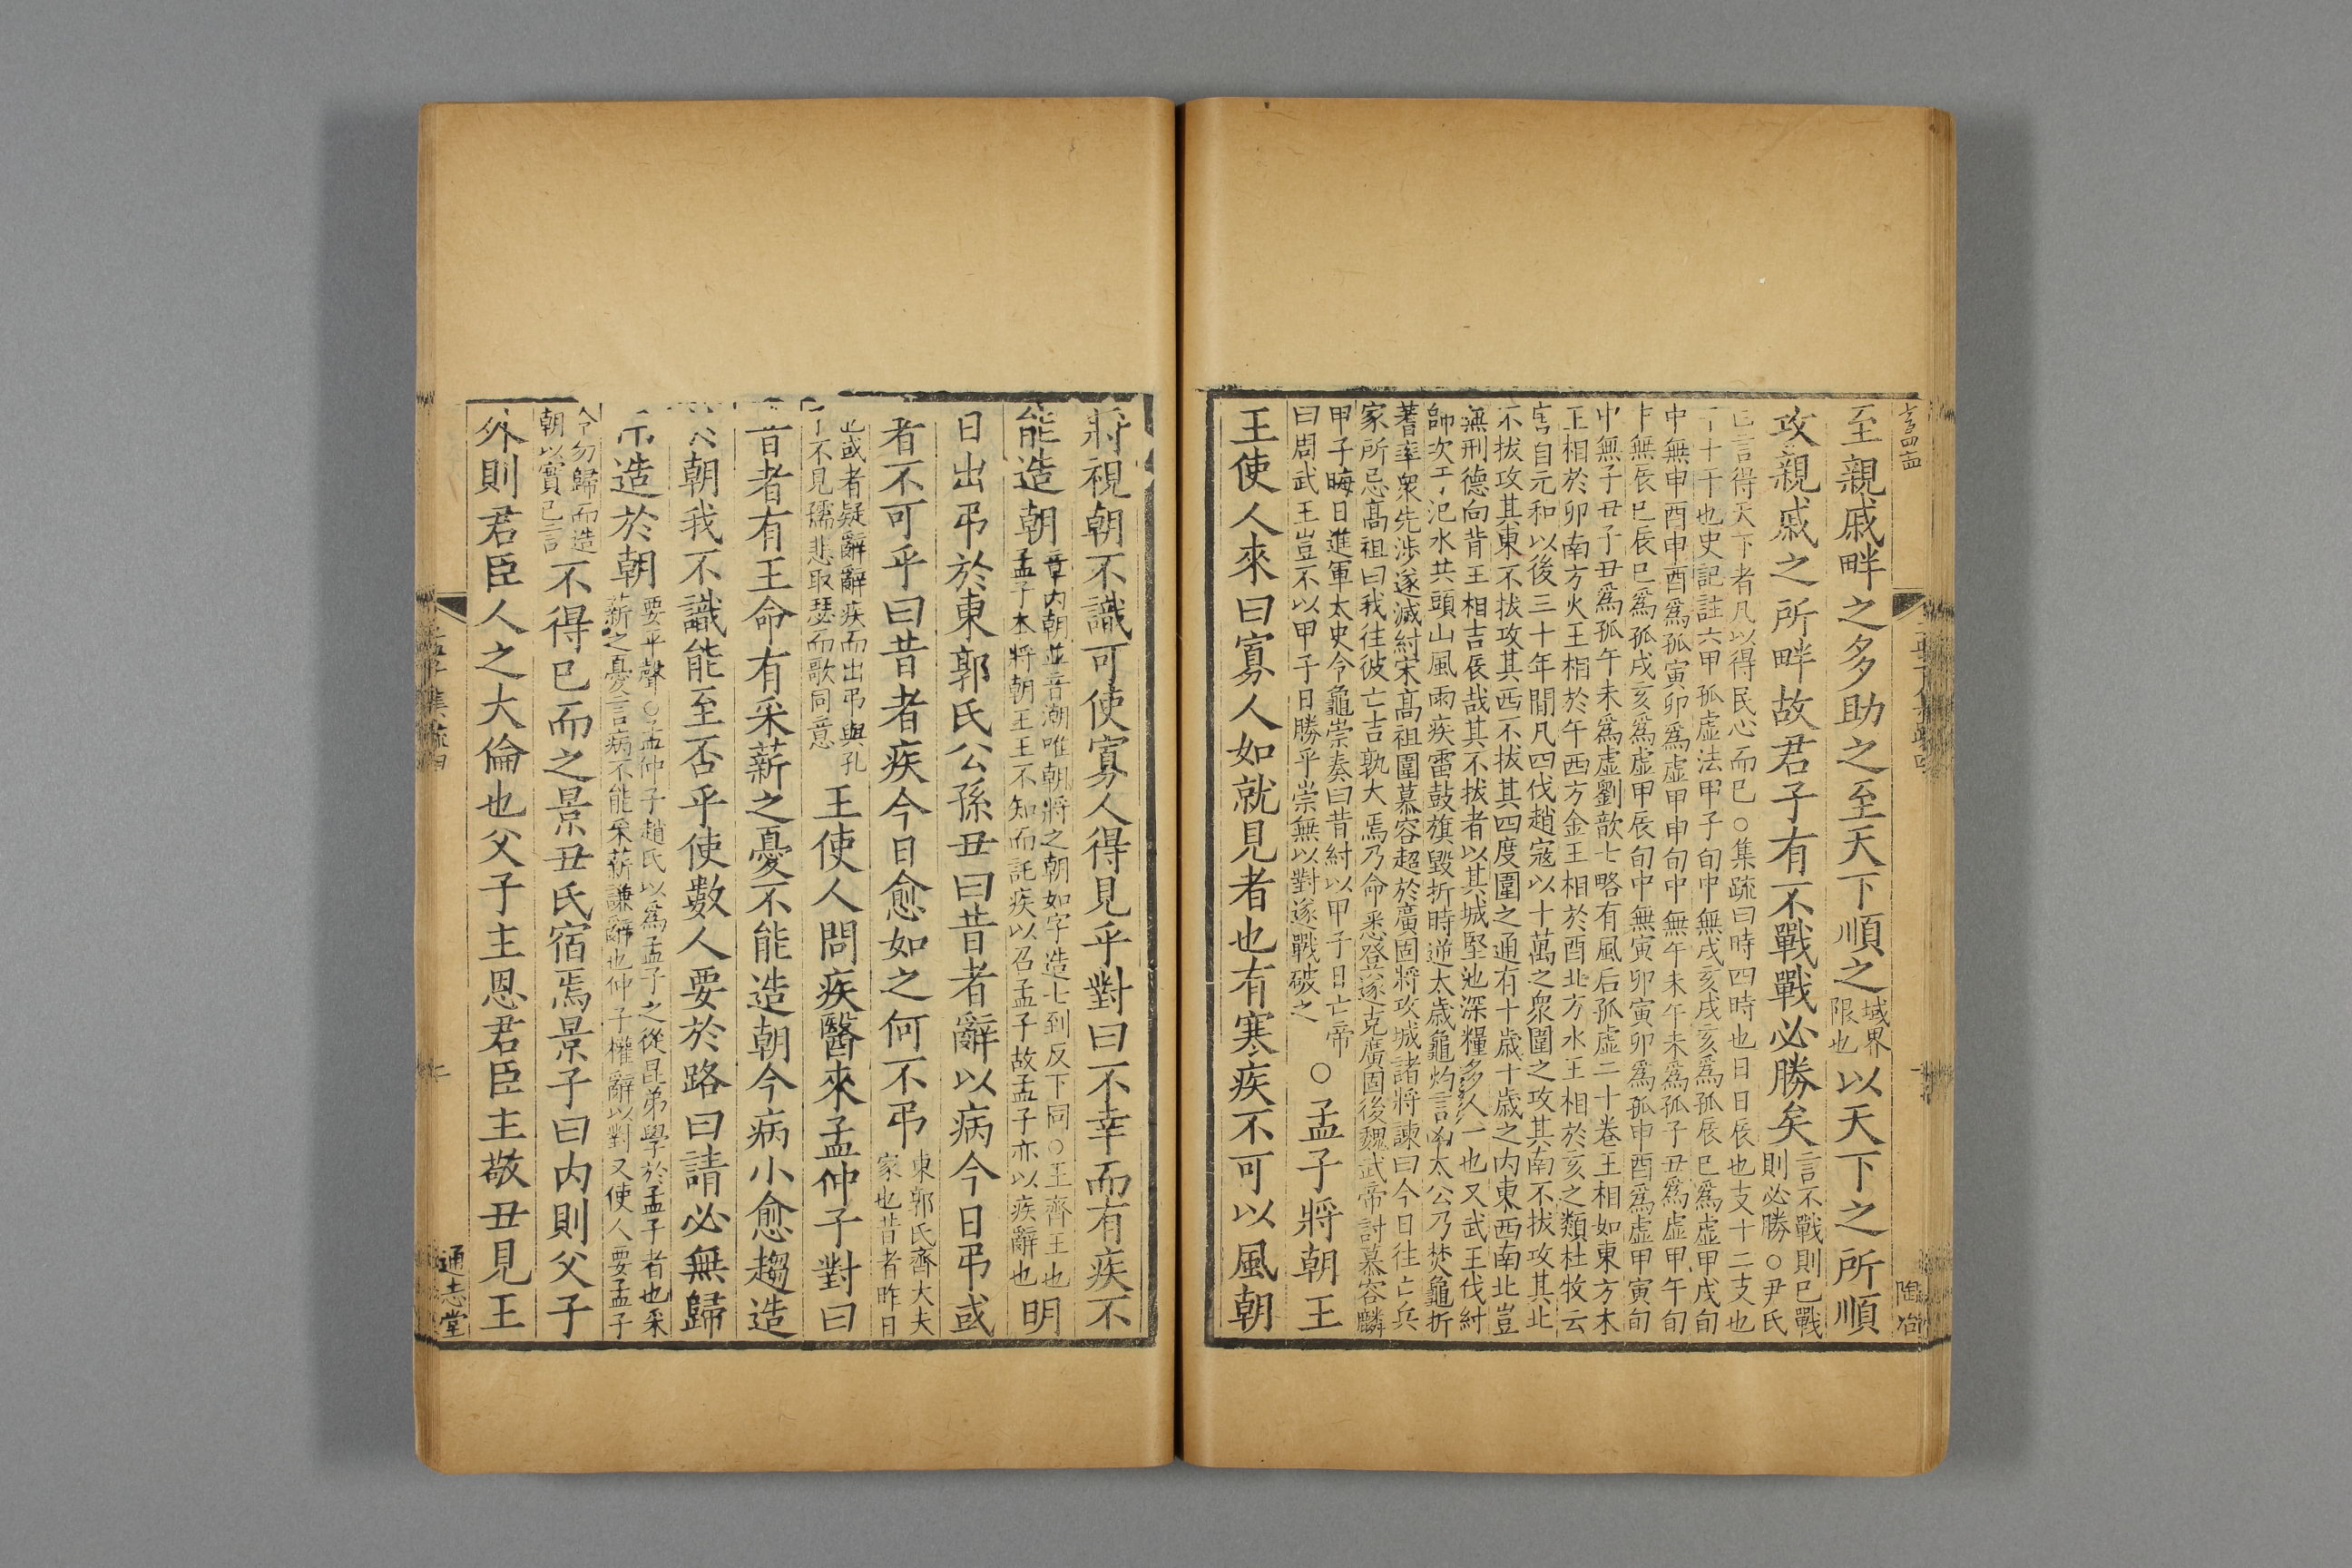 至親戚畔之多助之至天下順之域界限也以天下之所順
攻親戚之所畔故君子有不戰戰必勝矣言不戰則已戰則必勝○尹氏
曰言得天下者凡以得民心而已○集疏曰時四時也日日辰也支十二支也
干十干也史記註六甲孤虛法甲子旬中無戌亥戌亥爲孤辰巳爲虛甲戌旬
中無申酉申酉爲孤寅卯爲虛甲申旬中無午未午未爲孤子丑爲虛甲午旬
中無辰巳辰巳爲孤戌亥爲虛甲辰旬中無寅卯寅卯爲孤申酉爲虛甲寅旬
中無子丑子丑爲孤午未爲虛劉歆七略有風后孤虛二十卷王相如東方木
王相於卯南方火王相於午西方金王相於酉北方水王相於亥之類杜牧云
自元和以後三十年間凡四伐趙寇以十萬之衆圍之攻其南不拔攻其北
不拔攻其東不拔攻其西不拔其四度圍之通有十歲十歲之内東西南北豈
無刑德向背王相吉辰哉其不拔者以其城堅池深糧多人一也又武王伐紂
師次于汜水共頭山風雨疾雷鼓旗毀折時逆太歲龜灼言凶太公乃焚龜折
蓍率衆先涉遂滅紂宋髙祖圍慕容超於廣固將攻城諸將諫曰今日往亡兵
家所忌髙祖曰我往彼亡吉孰大焉乃命悉登遂克廣固後魏武帝討慕容麟
甲子晦日進軍太史令龜崇奏曰昔紂以甲子日亡帝
曰周武王豈不以甲子日勝乎崇無以對遂戰破之○孟子將朝王
王使人來曰寡人如就見者也有寒疾不可以風朝
陶冶
將視朝不識可使寡人得見乎對曰不幸而有疾不
能造朝章内朝並音潮唯朝將之朝如字造七到反下同○王齊王也孟子本將朝王王不知而託疾以召孟子故孟子亦以疾辭也明
日出弔於東郭氏公孫丑曰昔者辭以病今日弔或
者不可乎曰昔者疾今日愈如之何不弔東郭氏齊大夫家也昔者昨日
也或者疑辭辭疾而出弔與孔子不見孺悲取瑟而歌同意王使人問疾醫來孟仲子對曰
昔者有王命有采薪之憂不能造朝今病小愈趨造
於朝我不識能至否乎使數人要於路曰請必無歸
而造於朝要平聲○孟仲子趙氏以爲孟子之從昆弟學於孟子者也采薪之憂言病不能采薪謙辭也仲子權辭以對又使人要孟子
令勿歸而造朝以實已言不得已而之景丑氏宿焉景子曰内則父子
外則君臣人之大倫也父子主恩君臣主敬丑見王
孟子集疏四
通志堂